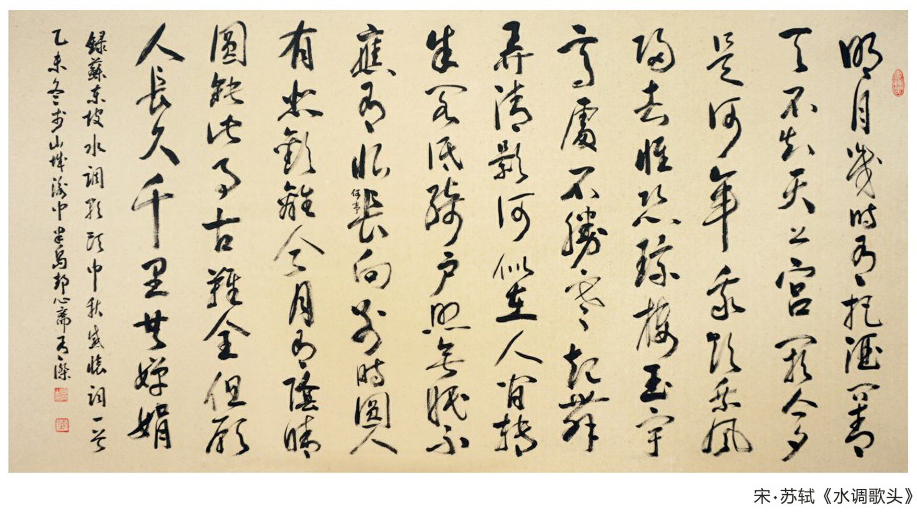 明月幾時有把酒問青
天不知天上宫闕今夕
是何年我欲乘風
歸去惟恐瓊樓玉宇
高處不勝寒起舞
弄清影何似在人间轉
朱阁低綺户照無眠不
應有恨何事長向别時圓人
有悲歡離合月有陰晴
圓缺此事古難全但願
人長久千里共嬋娟
録蘇東坡水調歌頭中秋感懷詞一首
乙未冬於山城渝中半島
宋·苏轼《水调歌头》